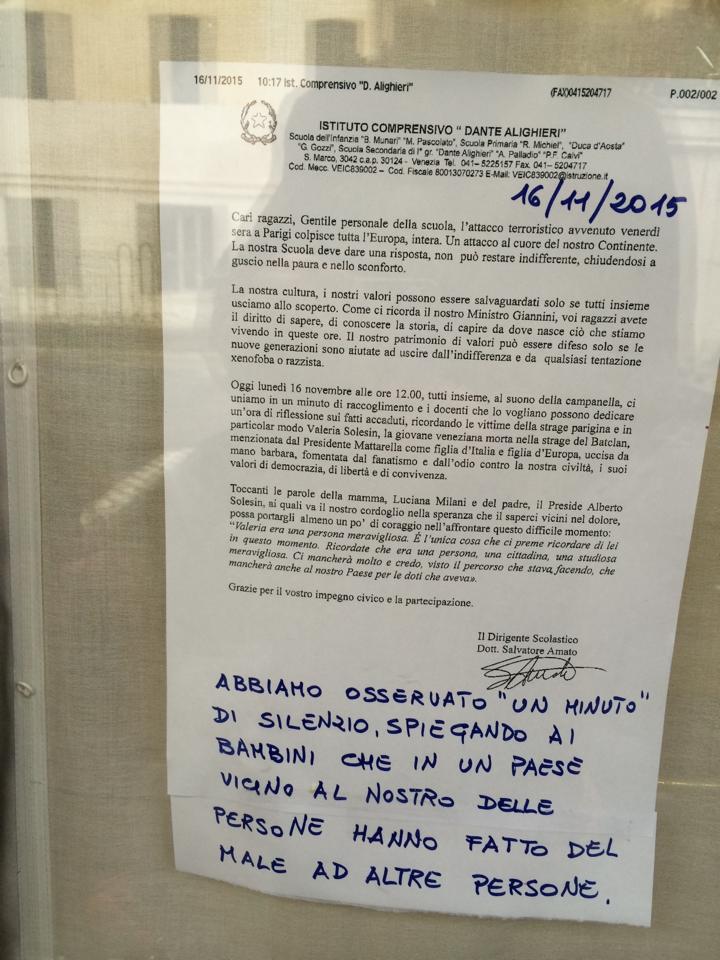 16/11/2015 10:17 Ist. Comprensivo "D. Alighieri" (FAX)0415204717 P.002/002
ISTITUTO COMPRENSIVO " DANTE ALIGHIERI"
Scuola dell'Infanzia "B. Munari" "M. Pascolato", Scuola Primaria "R. Michiel", "Duca d'Aosta"
"G. Gozzi", Scuola Secondaria di I° gr. "Dante Alighieri" "A. Palladio" "P.F. Calvi"
S. Marco, 3042 c.a.p. 30124 - Venezia Tel. 041- 5225157 Fax. 041- 5204717
Cod. Mecc. VEIC839002 – Cod. Fiscale 80013070273 E-Mail: VEIC839002@istruzione.it
16/11/2015
Cari ragazzi, Gentile personale della scuola, l'attacco terroristico avvenuto venerdì
sera a Parigi colpisce tutta l'Europa, intera. Un attacco al cuore del nostro Continente.
La nostra Scuola deve dare una risposta, non può restare indifferente, chiudendosi a
guscio nella paura e nello sconforto.
La nostra cultura, i nostri valori possono essere salvaguardati solo se tutti insieme
usciamo allo scoperto. Come ci ricorda il nostro Ministro Giannini, voi ragazzi avete
il diritto di sapere, di conoscere la storia, di capire da dove nasce ciò che stiamo
vivendo in queste ore. Il nostro patrimonio di valori può essere difeso solo se le
nuove generazioni sono aiutate ad uscire dall'indifferenza e da qualsiasi tentazione
xenofoba o razzista.
Oggi lunedì 16 novembre alle ore 12.00, tutti insieme, al suono della campanella, ci
uniamo in un minuto di raccoglimento e i docenti che lo vogliano possono dedicare
un'ora di riflessione sui fatti accaduti, ricordando le vittime della strage parigina e in
particolar modo Valeria Solesin, la giovane veneziana morta nella strage del Batclan,
menzionata dal Presidente Mattarella come figlia d'Italia e figlia d'Europa, uccisa da
mano barbara, fomentata dal fanatismo e dall'odio contro la nostra civiltà, i suoi
valori di democrazia, di libertà e di convivenza.
Toccanti le parole della mamma, Luciana Milani e del padre, il Preside Alberto
Solesin, ai quali va il nostro cordoglio nella speranza che il saperci vicini nel dolore,
possa portargli almeno un po' di coraggio nell'affrontare questo difficile momento:
"Valeria era una persona meravigliosa. È l'unica cosa che ci preme ricordare di lei
in questo momento. Ricordate che era una persona, una cittadina, una studiosa
meravigliosa. Ci mancherà molto e credo, visto il percorso che stava facendo, che
mancherà anche al nostro Paese per le doti che aveva».
Grazie per il vostro impegno civico e la partecipazione.
Il Dirigente Scolastico
Dott. Salvatore Amato
ABBIAMO OSSERVATO "UN MINUTO"
DI SILENZIO, SPIEGANDO AI
BAMBINI CHE IN UN PAESE
VICINO AL NOSTRO DELLE
PERSONE HANNO FATTO DEL
MALE AD ALTRE PERSONE.